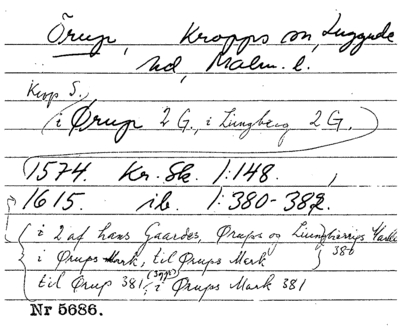 Örup, Kropps sn, Luggude
hd, Malm. l.
Krop S.
(i Ørup 2 G., i Liungberg 2 G.)
1574. Kr. Sk. 1:148.
1615. ib. 1:380-382.
i 2 af hans Gaarde, Ørups og Liungbierigs Marke
i Ørups Mark, til Ørups Mark } 380
til Ørup 381, i Ørups Mark 381
Nr 5686.